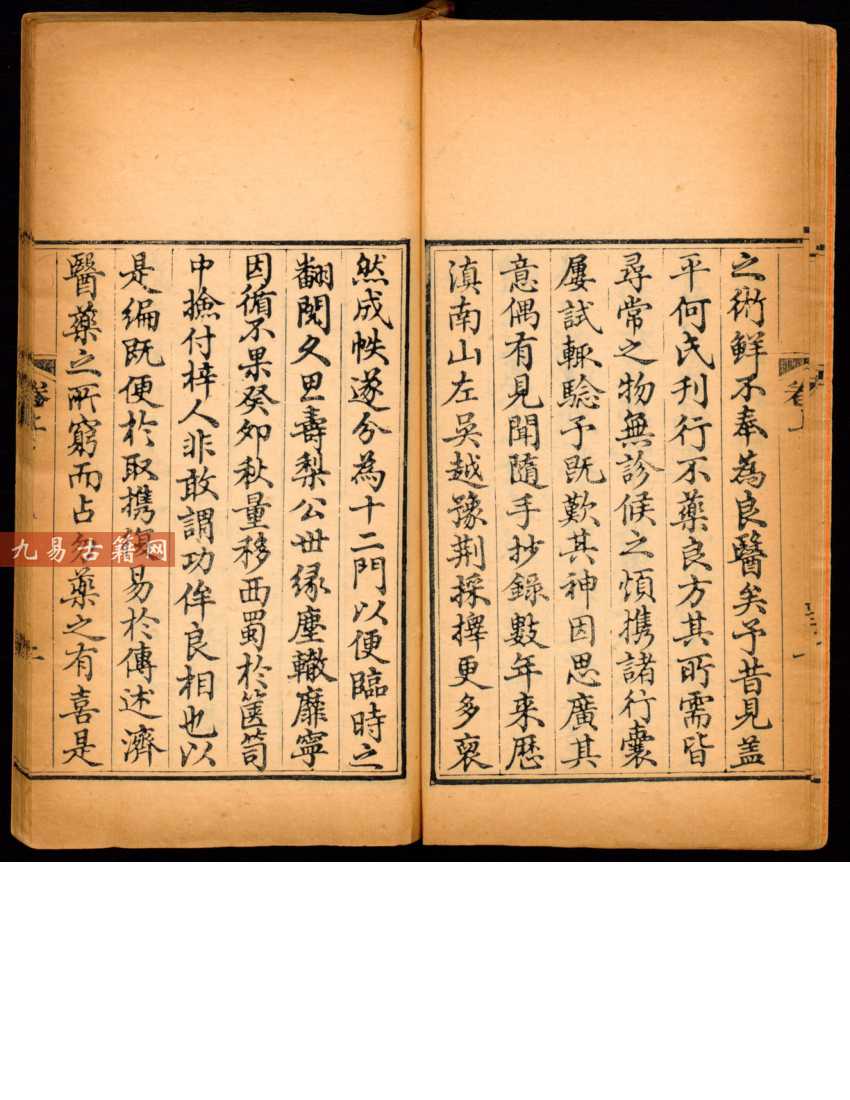 之術鮮不奉為良醫矣予昔見盖
平何氏刋行不藥良方其所需皆
尋常之物無診候之煩携諸行囊
屢試輒驗予既歎其神因思廣其
意偶有見聞隨手抄録數年来歴
滇南山左吳越豫荆採擇更多裒
然成帙遂分為十二門以便臨時之
翻閱久思壽梨公世緣塵轍靡寧
因循不果癸卯秋量移西蜀於篋笥
中撿付梓人非敢謂功侔良相也以
是編既便於取携復易於傳述濟
醫藥之所窮而占勿藥之有喜是
卷上
卷上
九易古籍网